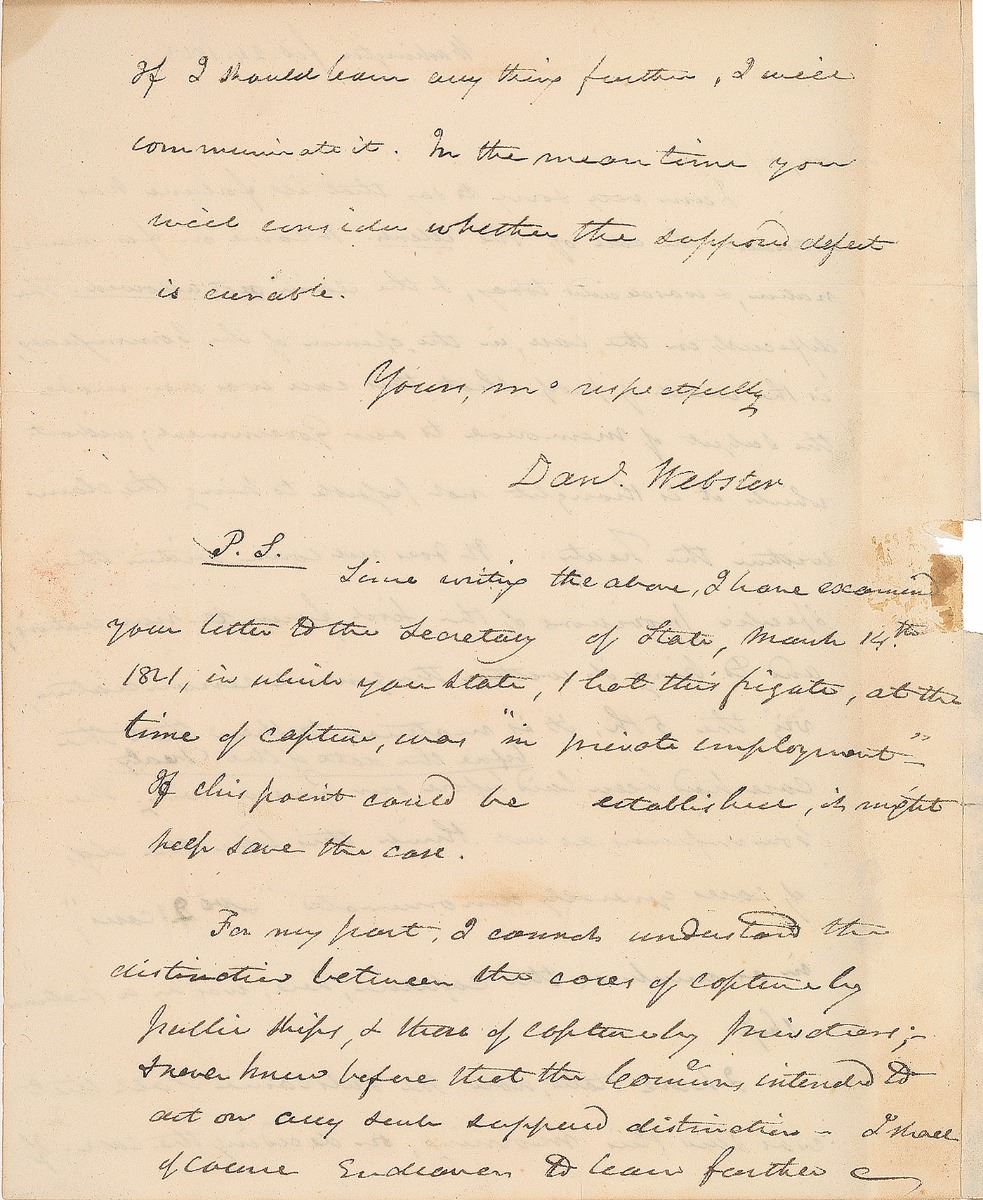 If I should learn any thing further, I will
communicate it. In the mean time you
will consider whether the supposed defect
is curable.
Yours, mo respectfully
Danl. Webster
P. S.
Since writing the above, I have examined
your letter to the Secretary of State, March 14th
1821, in which you state, that this frigate, at the
time of capture, was "in private employment"
If this point could be established, it might
help save the case.
For my part, I cannot understand the
distinction between the cases of capture by
public ships, & those of capture by privateers;-
I never knew before that the Comrs intended to
act on any such supposed distinction - I shall
of course endeavor to learn further